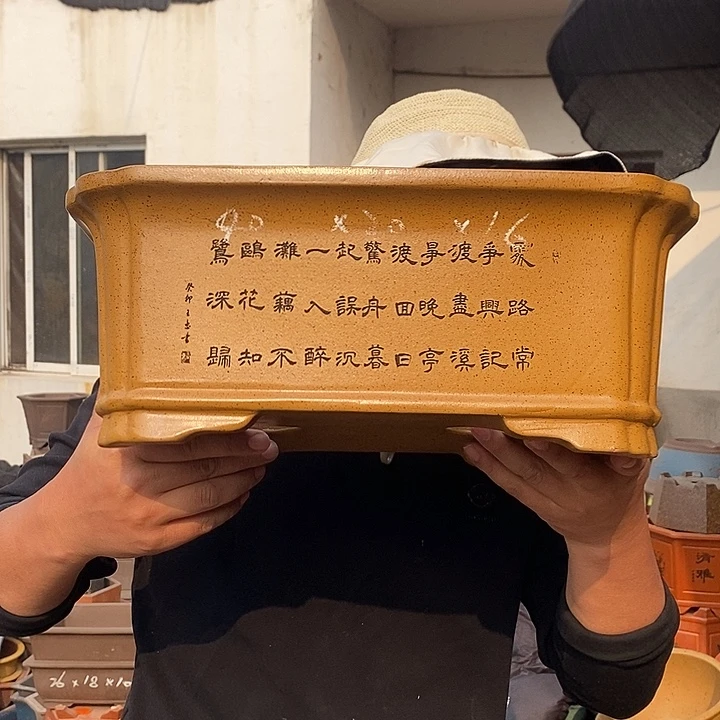 40 x20 x16
常記溪亭日暮沉醉不知歸
路興盡晚回舟誤入藕花深
處爭渡爭渡驚起一灘鷗鷺
癸卯 書
26x18x10
清雅